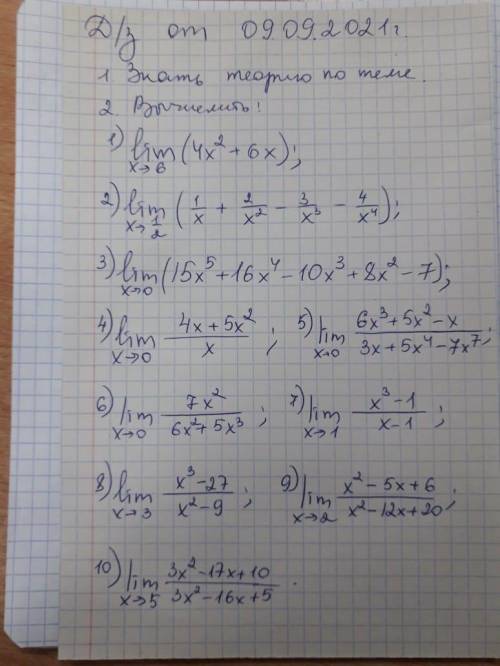 Д/з от 09.09.2021г.
1. Знать теорию по теме.
2. Вычислить!
1) lim x→6 (4x² + 6x);
2) lim x→1/2 (1/x + 2/x² − 3/x³ − 4/x⁴);
3) lim x→0 (15x⁵ + 16x⁴ − 10x³ + 8x² − 7);
4) lim x→0 (4x + 5x²)/x; 5) lim x→0 (6x³ + 5x² − x)/(3x + 5x⁴ − 7x⁷);
6) lim x→0 7x²/(6x² + 5x³); 7) lim x→1 (x³ − 1)/(x − 1);
8) lim x→3 (x³ − 27)/(x² − 9); 9) lim x→2 (x² − 5x + 6)/(x² − 12x + 20);
10) lim x→5 (3x² − 17x + 10)/(3x² − 16x + 5).